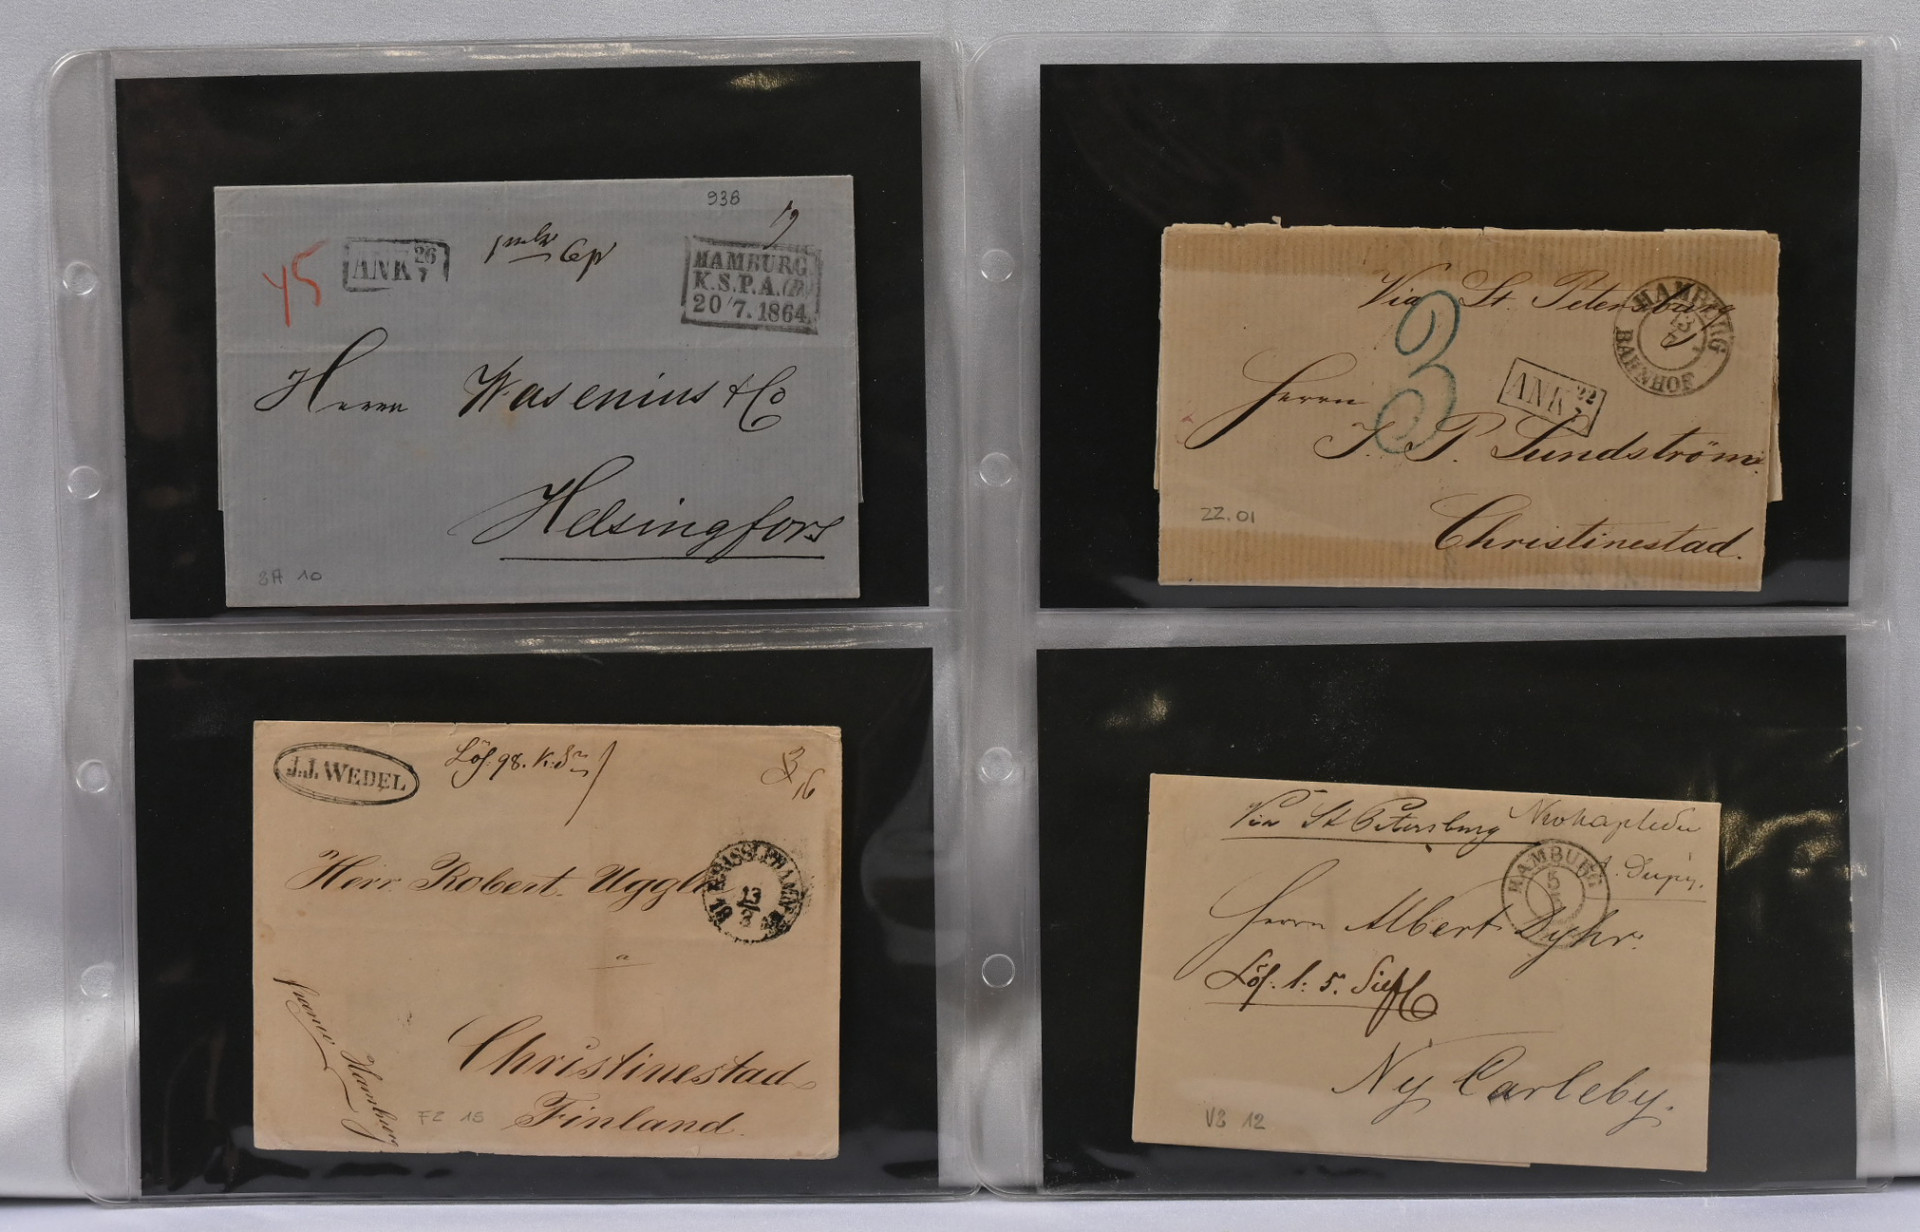 938
45
ANK 26/7
HAMBURG.
K.S.P.A.(B)
20/7.1864
Herrn Wasenius & Co
Helsingfors
SA 10
Via St. Petersburg
HAMBURG
13
BAHNHOF
3
ANK 22/7
Herrn
J. P. Sundström.
ZZ.01
Christinestad.
J.J. WEDEL
Lös. 98. K:
3
16
Herr Robert Uggla
18 13/3
a
Christinestad
Finland.
franco Hamburg
FZ 15
Via St Petersburg
HAMBURG
Herrn Albert Dyhr.
Lös. 1: 5. Silf
Ny Carleby.
V3 12